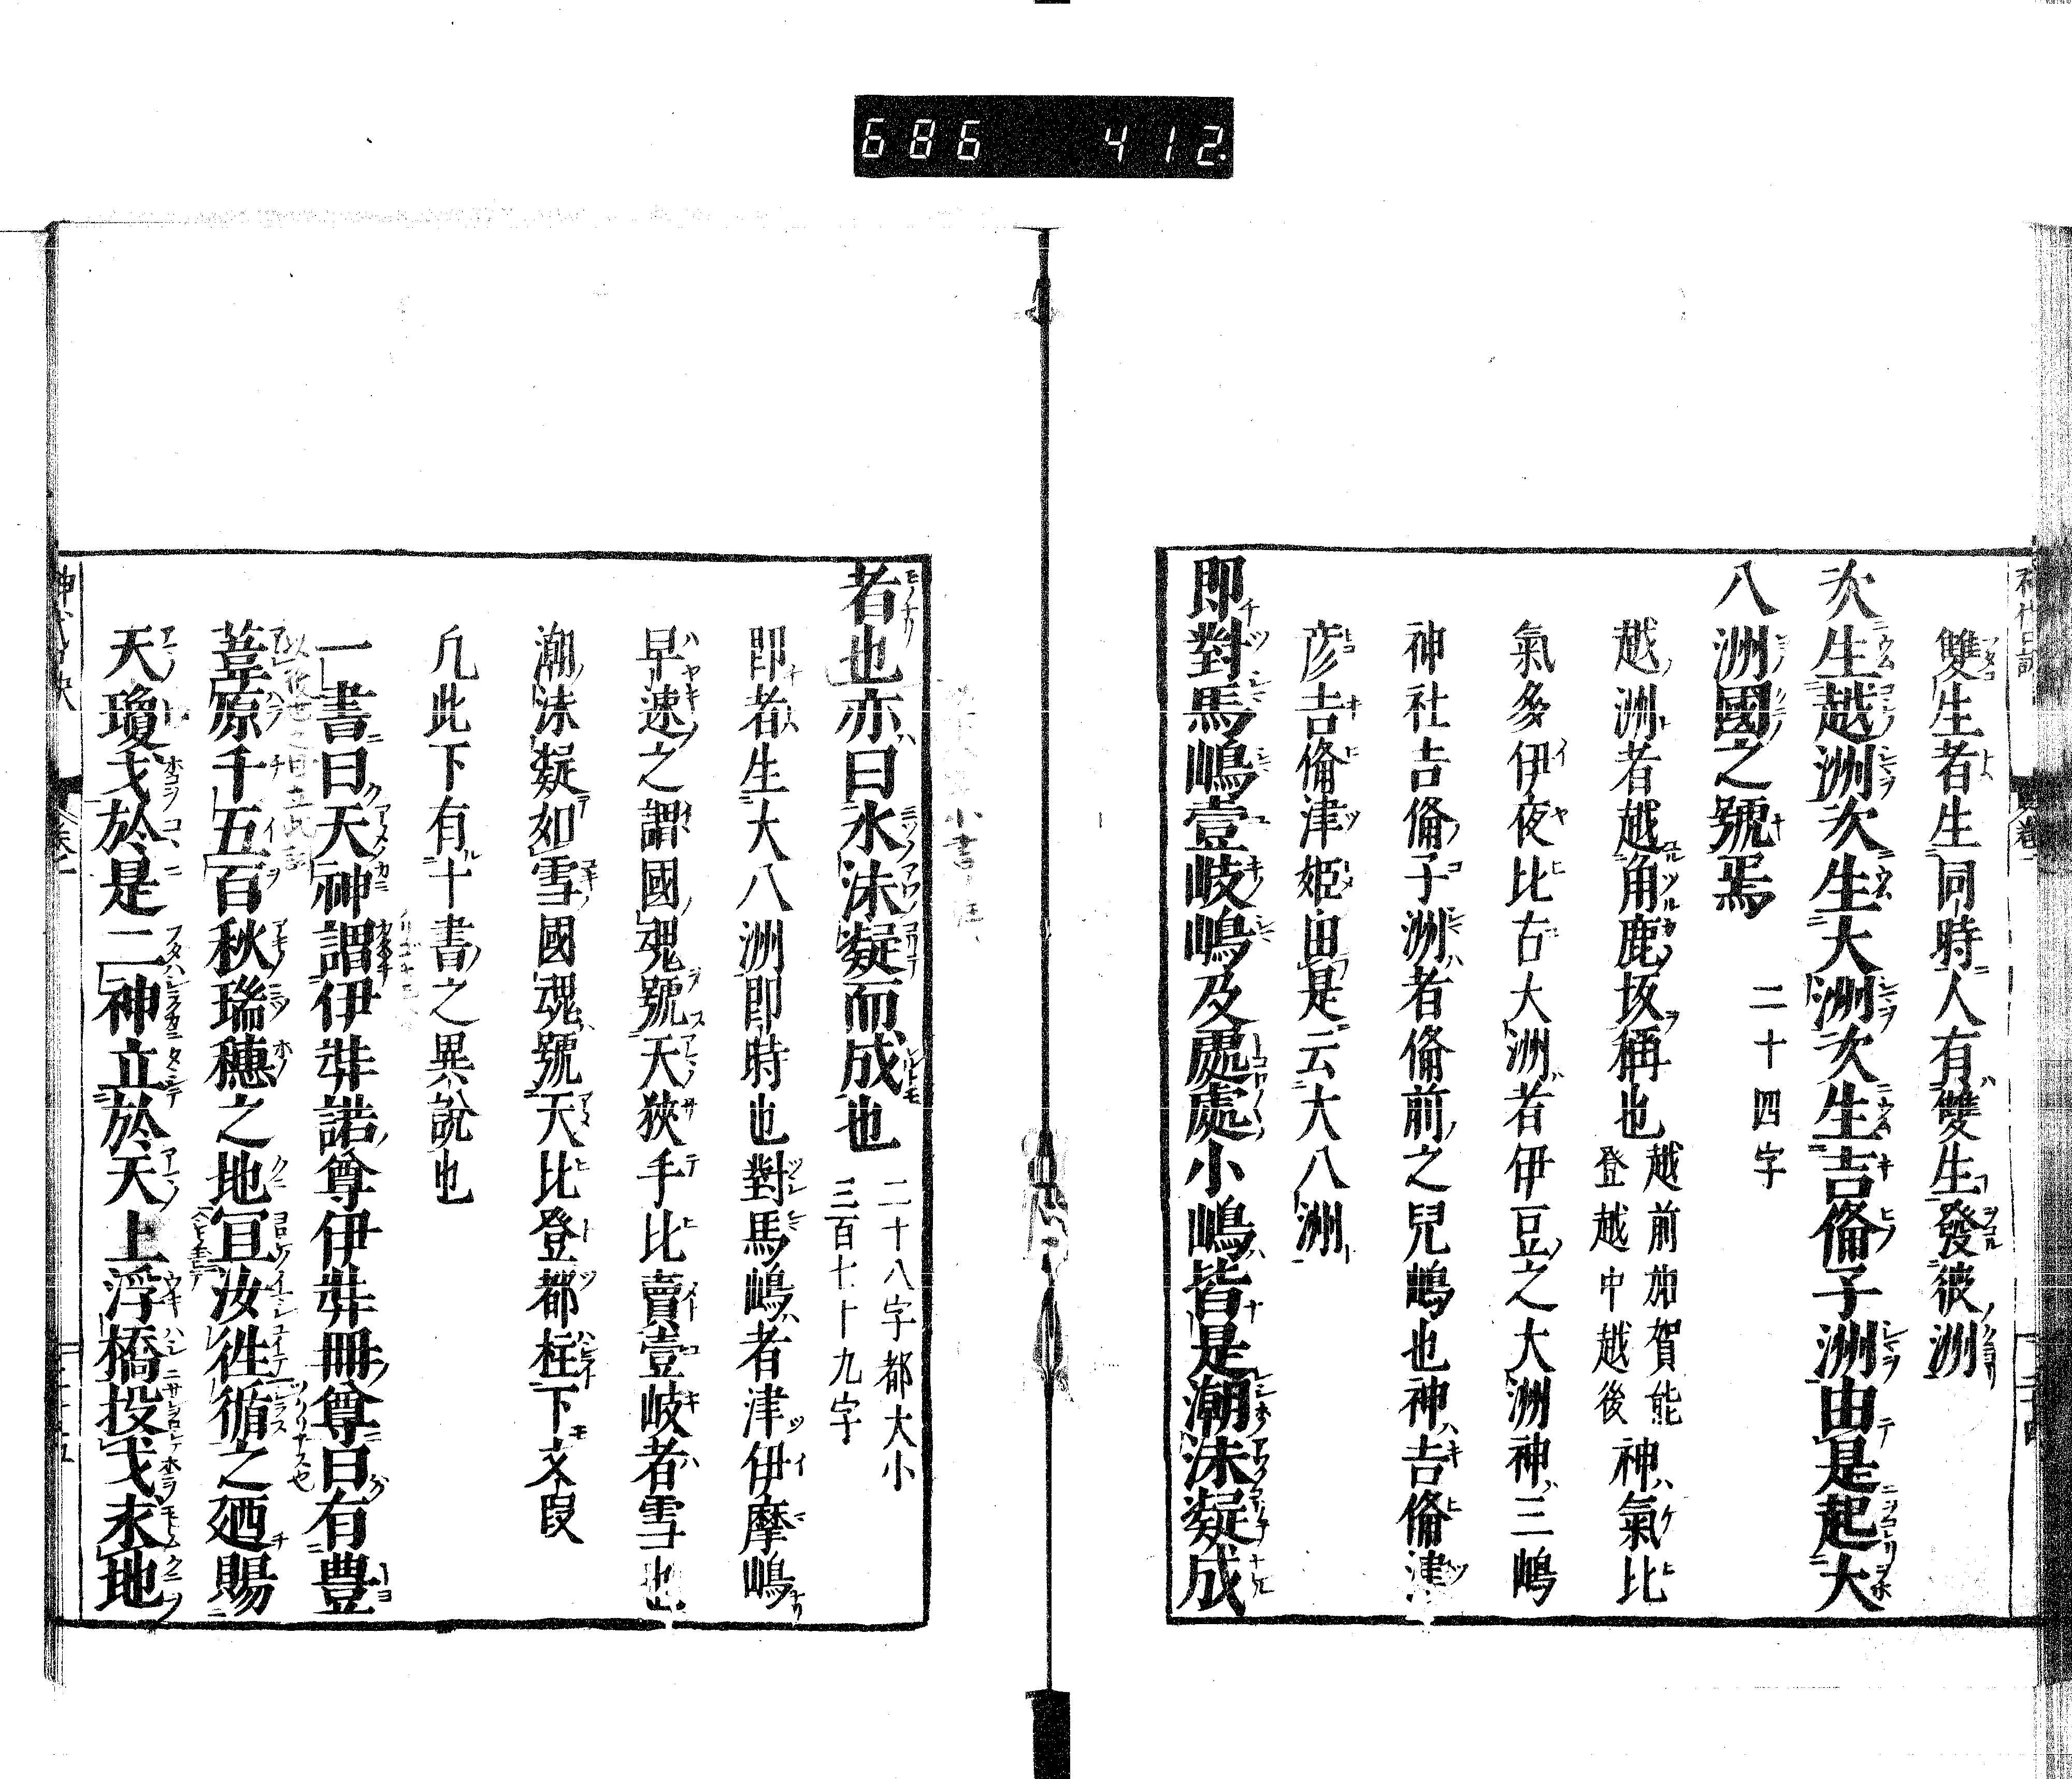 686 412
雙生者生同時人有雙生發彼洲
次生越洲次生大洲次生吉備子洲由是起大
八洲國之號焉 二十四字
越洲者越角鹿坂稱也 越前加賀能登越中越後 神氣比
氣多伊夜比古大洲者伊豆之大洲神三嶋
神社吉備子洲者備前之兒嶋也神吉備津
彦吉備津姫由是云大八洲
即對馬嶋壹岐嶋及處處小嶋皆是潮沫凝成
者也亦曰水沫凝而成也 二十八字都大小三百七十九字
即者生大八洲即時也對馬嶋者津伊摩嶋
早速之謂國魂號天狹手比賣壹岐者雪也
潮沫凝如雪國魂號天比登都柱下文段
凡此下有十書之異說也
一書曰天神謂伊弉諾尊伊弉冊尊曰有豊
葦原千五百秋瑞穗之地宜汝徃循之廼賜
天瓊戈於是二神立於天上浮橋投戈求地